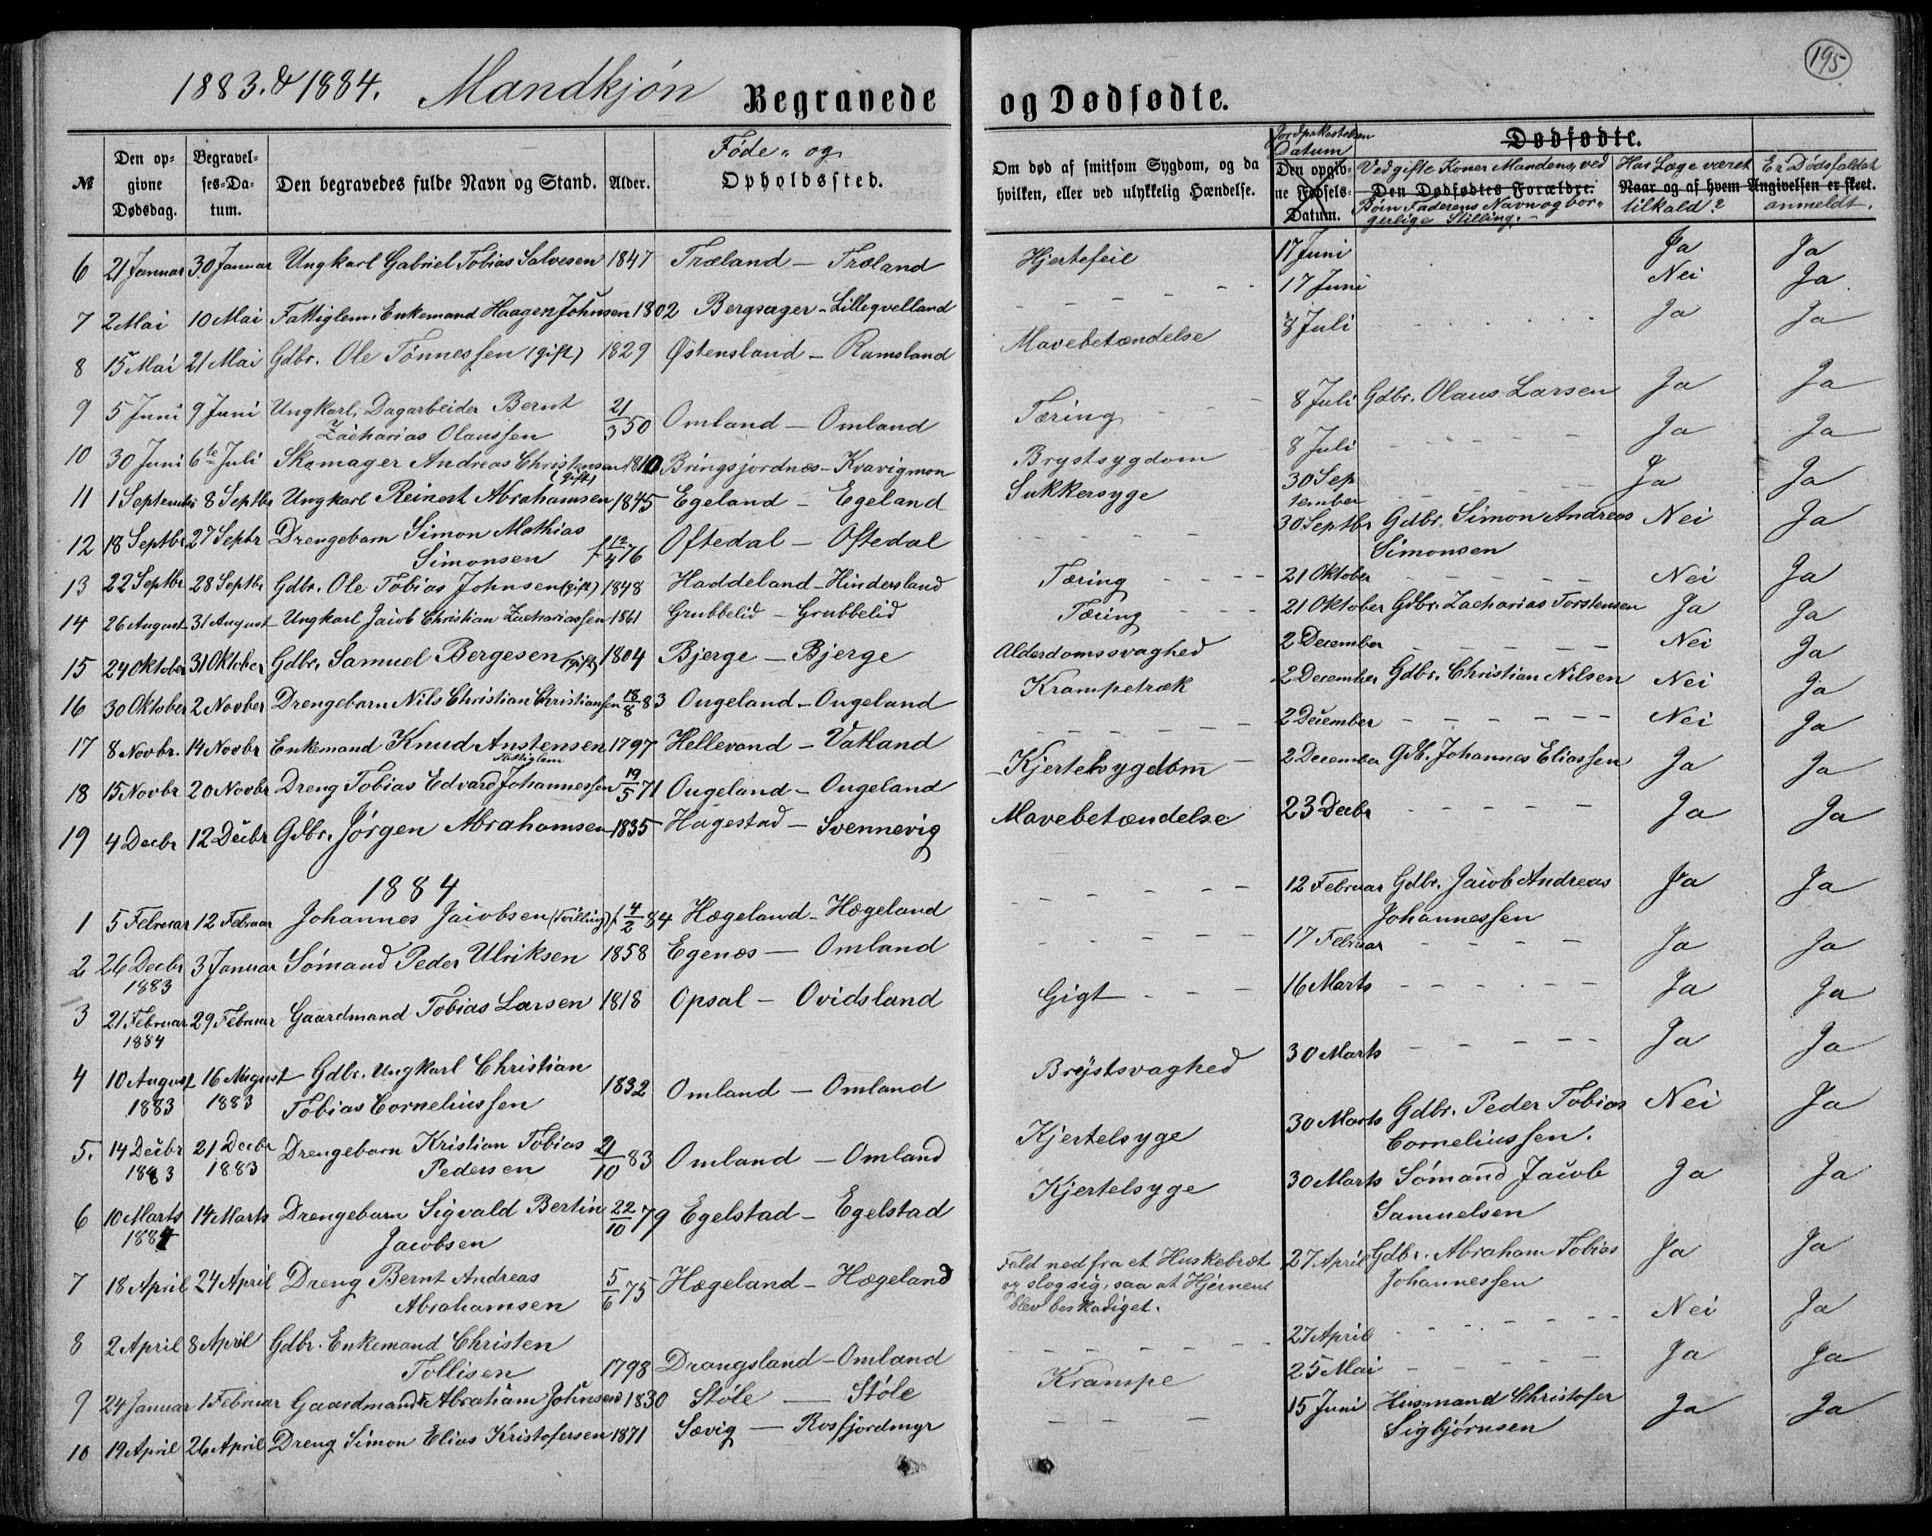 195
1883. & 1884. Mandkjón Begravede og Dødfødte.
№ | Den opgivne Dødsdag. | Begravelses-Datum. | Den begravedes fulde Navn og Stand. | Alder. | Føde- og Opholdssted. | Om død af smitsom Sygdom, og da hvilken, eller ved ulykkelig Hændelse. | Jordpaakastelsen Datum Den opgivne Fødsels-Datum. | Dødfødte. Ved gifte Koner Mandens, ved Den Dødfødtes Forældre. Børn Faderens Navn og borgerlige Stilling. | Har Læge været Naar og af hvem tilkald? | Er Dødsfaldet Angivelsen er skeet. anmeldt.
6 | 21 Januar | 30 Januar | Ungkarl Gabriel Tobias Salvesen | 1847 | Træland – Træland | Hjertefeil | 17 Juni | | Ja | Ja
7 | 2 Mai | 10 Mai | Fattiglem. Enkemand Haagen Johnsen | 1802 | Bergsager – Lillegvelland | – – – | 17 Juni | | Nei | Ja
8 | 15 Mai | 21 Mai | Gdbr. Ole Tónnessen (gift) | 1829 | Østensland – Ramsland | Mavebetændelse | 8 Juli | – – – | Ja | Ja
9 | 5 Juni | 9 Juni | Ungkarl. Dagarbeider Bernt Zacharias Olaussen | 21/3 50 | Omland – Omland | Tæring | 8 Juli | Gdbr. Olaus Larsen | Ja | Ja
10 | 30 Juni | 6te Juli | Skomager Andreas Christensen (gift) | 1810 | Bringsjordnæs – Kvavigmon | Brystsygdom | 8 Juli | – – – | Ja | Ja
11 | 1 September | 8 Septbr | Ungkarl Reinert Abrahamsen | 1845 | Egeland – Egeland | Sukkersyge | 30 September | – – – | Ja | Ja
12 | 18 Septbr | 27 Sepbr | Drengebarn Simon Mathias Simonsen | f 12/4 76 | Oftedal – Oftedal | – – – | 30 Septbr | Gdbr. Simon Andreas Simonsen | Nei | Ja
13 | 22 Septbr | 28 Septbr | Gdbr. Ole Tobias Johnsen (gift) | 1848 | Haddeland – Hindersland | Tæring | 21 Oktober | – – – | Nei | Ja
14 | 26 August | 31 August | Ungkarl Jacob Christian Zachariassen | 1861 | Grubbelid – Grubbelid | Tæring | 21 Oktober | Gdbr. Zacharias Torstensen | Ja | Ja
15 | 24 Oktober | 31 Oktober | Gdbr. Samuel Bergesen (gift) | 1804 | Bjerge – Bjerge | Alderdomssvaghed | 2 December | – – – | Nei | Ja
16 | 30 Oktober | 2 Novber | Drengebarn Nils Christian Christiansen | 18/8 83 | Ougeland – Ougeland | Krampetræk | 2 December | Gdbr. Christian Nilsen | Nei | Ja
17 | 8 Novbr. | 14 Novbr | Enkemand Knud Anstensen Fattiglem | 1797 | Hellevand – Vatland | – – – | 2 December | – – – | Nei | Ja
18 | 15 Novbr | 20 Novbr | Dreng Tobias Edvard Johannessen | 19/5 71 | Ougeland – Ougeland | Kjertelsygdom | 2 December | Gdb. Johannes Eliassen | Ja | Ja
19 | 4 Decbr | 12 Decbr | Gdbr. Jórgen Abrahamsen | 1835 | Hagestad – Svennevig | Mavebetændelse | 23 Decbr | – – – | Ja | Ja
1884
1 | 5 Februar | 12 Februar | Johannes Jacobsen (Tvilling) | f 4/2 84 | Hægeland – Hægeland | – – – | 12 Februar | Gdbr. Jacob Andreas Johannessen | Ja | Ja
2 | 26 Decbr 1883 | 3 Januar | Sómand Peder Ulriksen | 1858 | Egenæs – Omland | – – – | 17 Februar | – – – | Ja | Ja
3 | 21 Februar 1884 | 29 Februar | Gaardmand Tobias Larsen | 1818 | Opsal – Ovidsland | Gigt | 16 Marts | – – – | Ja | Ja
4 | 10 August 1883 | 16 August 1883 | Gdbr. Ungkarl Christian Tobias Corneliussen | 1832 | Omland – Omland | Brystsvaghed | 30 Marts | – – – | Ja | Ja
5. | 14 Decbr 1883 | 21 Decbr 1883 | Drengebarn Kristian Tobias Pedersen | 21/10 83 | Omland – Omland | Kjertelsyge | 30 Marts | Gdbr. Peder Tobias Corneliussen. | Nei | Ja
6 | 10 Marts 1884 | 14 Marts | Drengebarn Sigvald Bertin Jacobsen | 22/10 79 | Egelstad – Egelstad | Kjertelsyge | 30 Marts | Sómand Jacob Samuelsen | Ja | Ja
7 | 18 April | 24 April | Dreng Bernt Andreas Abrahamsen | 5/6 75 | Hægeland – Hægeland | Fald ned fra et Huskebræt og slog sig, saa at Hjernen blev beskadiget. | 27 April | Gdbr. Abraham Tobias Johannessen | Ja | Ja
8 | 2 April | 8 April | Gdbr. Enkemand Christen Tollisen | 1798 | Drangsland – Omland | – – – | 27 April | – – – | Nei | Ja
9 | 24 Januar | 1 Februar | Gaardmand Abraham Johnsen | 1830 | Stóle – Stóle | Krampe | 25 Mai | – – – | Ja | Ja
10 | 19 April | 26 April | Dreng Simon Elias Kristofersen | 1871 | Sævig – Rosfjordmyr | – – – | 15 Juni | Husmand Christofer Sigbjórnsen | Ja | Ja